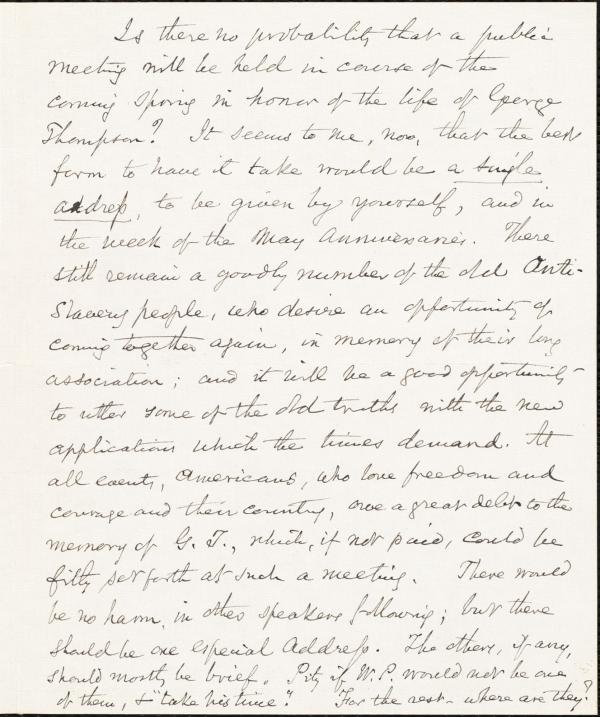 Is there no probability that a public
meeting will be held in course of the
coming Spring in honor of the life of George
Thompson? It seems to me, now, that the best
form to have it take would be a single
address, to be given by yourself, and in
the week of the May Anniversaries. There
still remain a goodly number of the old Anti-
Slavery people, who desire an opportunity of
coming together again, in memory of their long
association; and it will be a good opportunity
to utter some of the old truths with the new
applications which the times demand. At
all events, Americans, who love freedom and
courage and their country, owe a great debt to the
memory of G. T., which, if not paid, could be
fitly set forth at such a meeting. There would
be no harm in other speakers following; but there
should be one especial Address. The others, if any,
should mostly be brief. Pity if W. P. would not be one
of them, & "take his time." For the rest - where are they?